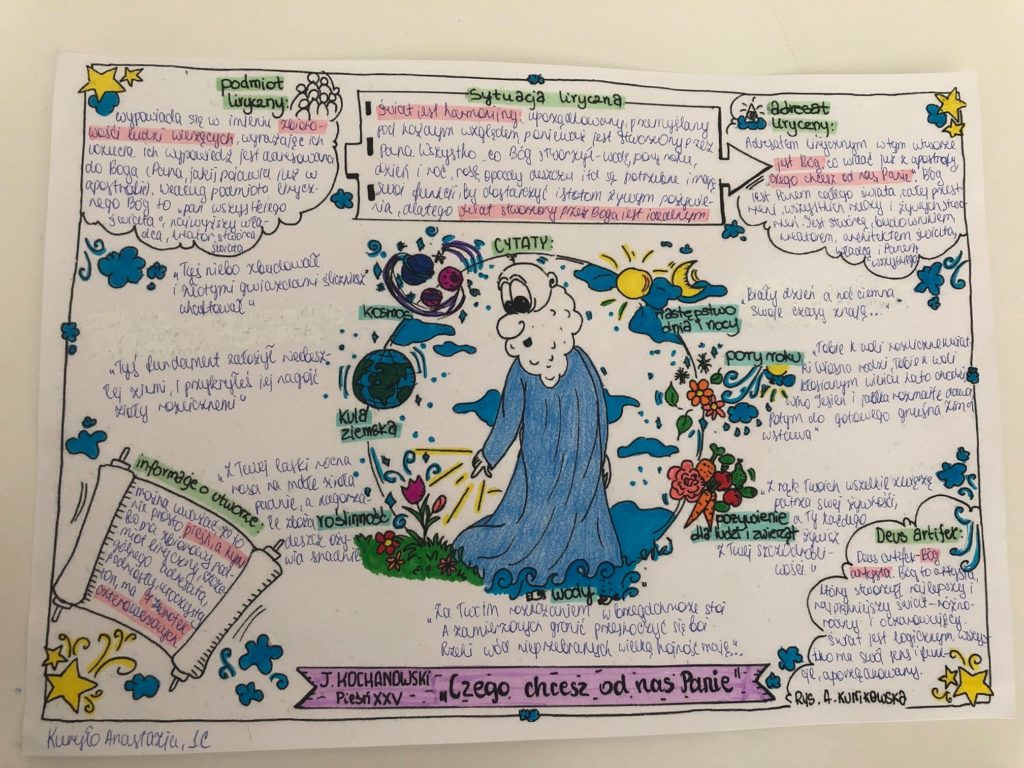 podmiot
liryczny:
wypowiada się w imieniu zbioro-
wości ludzi wierzących, wyrażając ich
uczucia. ich wypowiedź jest adresowana
do Boga (Pana, jak i pojawia już w
apostrofie). Według podmiotu lirycz-
nego Bóg to „pan wszystkiego
świata", najwyższy wła-
dca, kreator, stwórca
świata
Sytuacja liryczna
świat jest harmonijny, uporządkowany, przemyślany
pod każdym względem, ponieważ jest stworzony przez
Pana. Wszystko, co Bóg stworzył - wodę, pory roku,
dzień i noc, rosę, opady deszczu itd są potrzebne i mają
swoi funkcji, by dostarczyć istotom żywym pożywie-
nia, dlatego świat stworzony przez Boga jest idealnym.
adresat
liryczny:
Adresatem lirycznym w tym utworze
jest Bóg, co widać już z apostrofy
„Czego chcesz od nas Panie". Bóg
jest Panem całego świata, całej przest-
rzeni, wszystkich ludzi i żywych stwo-
rzeń. Jest stwórcą, budownikiem,
kreatorem, architektem świata,
władcą i Panem
wszystkiego
CYTATY:
„Tyś niebo zbudował
i złotymi gwiazdami ślicznieś
uhaftował"
kosmos
następstwo
dnia i nocy
„Biały dzień a noc ciemna
swoje czasy znają..."
„Tyś fundament założył nieobesz-
łej ziemi, i przykryłeś jej nagość
zioły rozlicznemi"
kula
ziemska
pory roku
„Tobie k woli rozliczne kwiat-
ki Wiosna rodzi, Tobie k woli
kłosianym wieńcu Lato chodzi
Wino Jesień i jabłka rozmaite dawa
Potym do gotowego gnuśna Zima
wstawa"
informacje o utworze:
można uważać go to
nie prosto pieśń, a hymn
bo ma zbiorowy pod-
miot liryczny, szcze-
gólnego adresata,
podniosły, uroczysty
ton, ma 7 zwrotek
czterowersowych
„Z Twej łaski nocna
rosa na mdłe zioła
padnie, a zagorza-
łe zboża
deszcz oży-
wia snadnie
roślinność
pożywienie
dla ludzi i zwierząt
„Z rąk Twoich wszelkie zwierzę
patrza swej żywności,
a Ty każdego
żywisz
z Twej szczodrobli-
wości."
Deus artifex:
Deus artifex - Bóg
artysta. Bóg to artysta,
który stworzył najlepszy i
najpiękniejszy świat - różno-
rodny i oczarowujący.
Świat jest logicznym, wszys-
tko ma swój sens i funk-
cję, uporządkowany.
wody
„Za Twoim rozkazaniem w brzegach morze stoi
A zamierzonych granic przeskoczyć się boi
Rzeki wód nieprzebranych wielką hojność mają..."
J. KOCHANOWSKI
Pieśń XXV
„Czego chcesz od nas Panie"
Rys. A. Kunikowska
Kuryło Anastazia, 1C